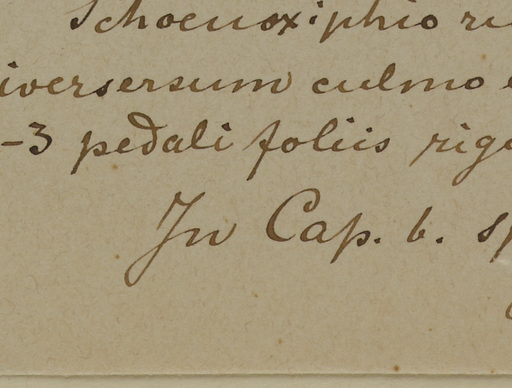 Schoenoxiphio ru
iversersum culmo e
-3 pedali foliis rig
In Cap. b. sp